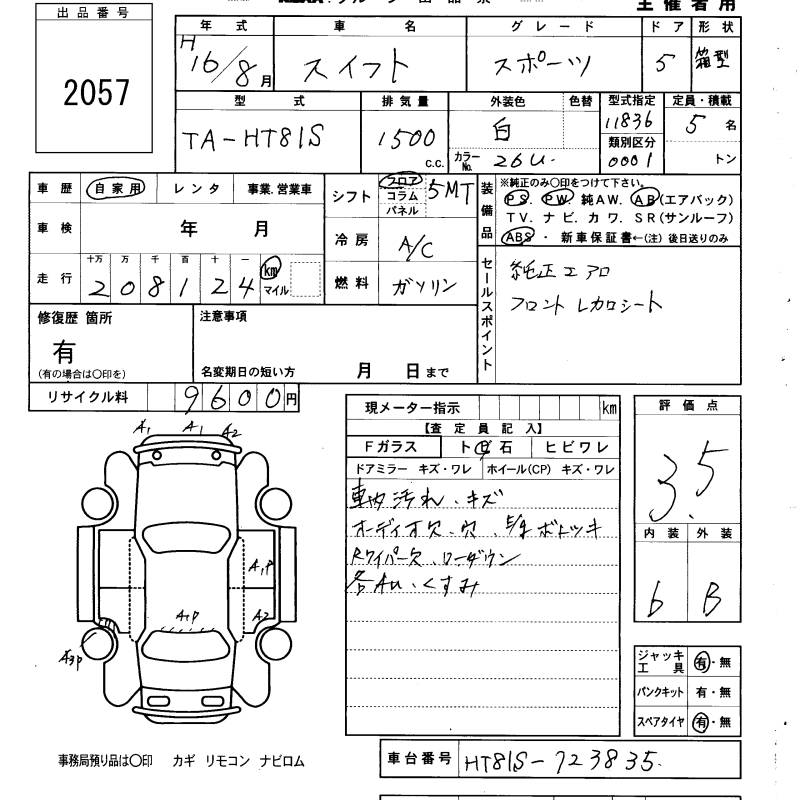 出品番号
2057
主催者用
年式 車名 グレード ドア 形状
H16/8月 スイフト スポーツ 5 箱型
型式 排気量 外装色 色替 型式指定 定員・積載
TA-HT81S 1500 c.c. 白 11836 5名
類別区分
カラーNo. 26U 0001 トン
車歴 自家用 レンタ 事業.営業車
シフト フロア コラム パネル 5MT
装備品 ※純正のみ〇印をつけて下さい。
PS. PW 純AW. AB(エアバック)
TV. ナビ. カワ. SR(サンルーフ)
ABS・ 新車保証書←(注) 後日送りのみ
車検 年 月
冷房 A/C
走行 十万 万 千 百 十 一
208124 km マイル
燃料 ガソリン
セールスポイント
純正エアロ
フロント レカロシート
修復歴 箇所
有
(有の場合は〇印を)
注意事項
名変期日の短い方 月 日まで
リサイクル料 9600円
現メーター指示 km
【査定員記入】
Fガラス ト石 ヒビワレ
ドアミラー キズ・ワレ ホイール(CP) キズ・ワレ
車内汚れ・キズ
オーディオ欠、穴、ボトッキ
Rワイパー欠、ローダウン
各AU、くすみ
評価点
3.5
内装 外装
6 B
A1 A1 A2
A1P
A1P A2
A3P
ジャッキ工具 有・無
パンクキット 有・無
スペアタイヤ 有・無
事務局預り品は〇印 カギ リモコン ナビロム
車台番号 HT81S-723835